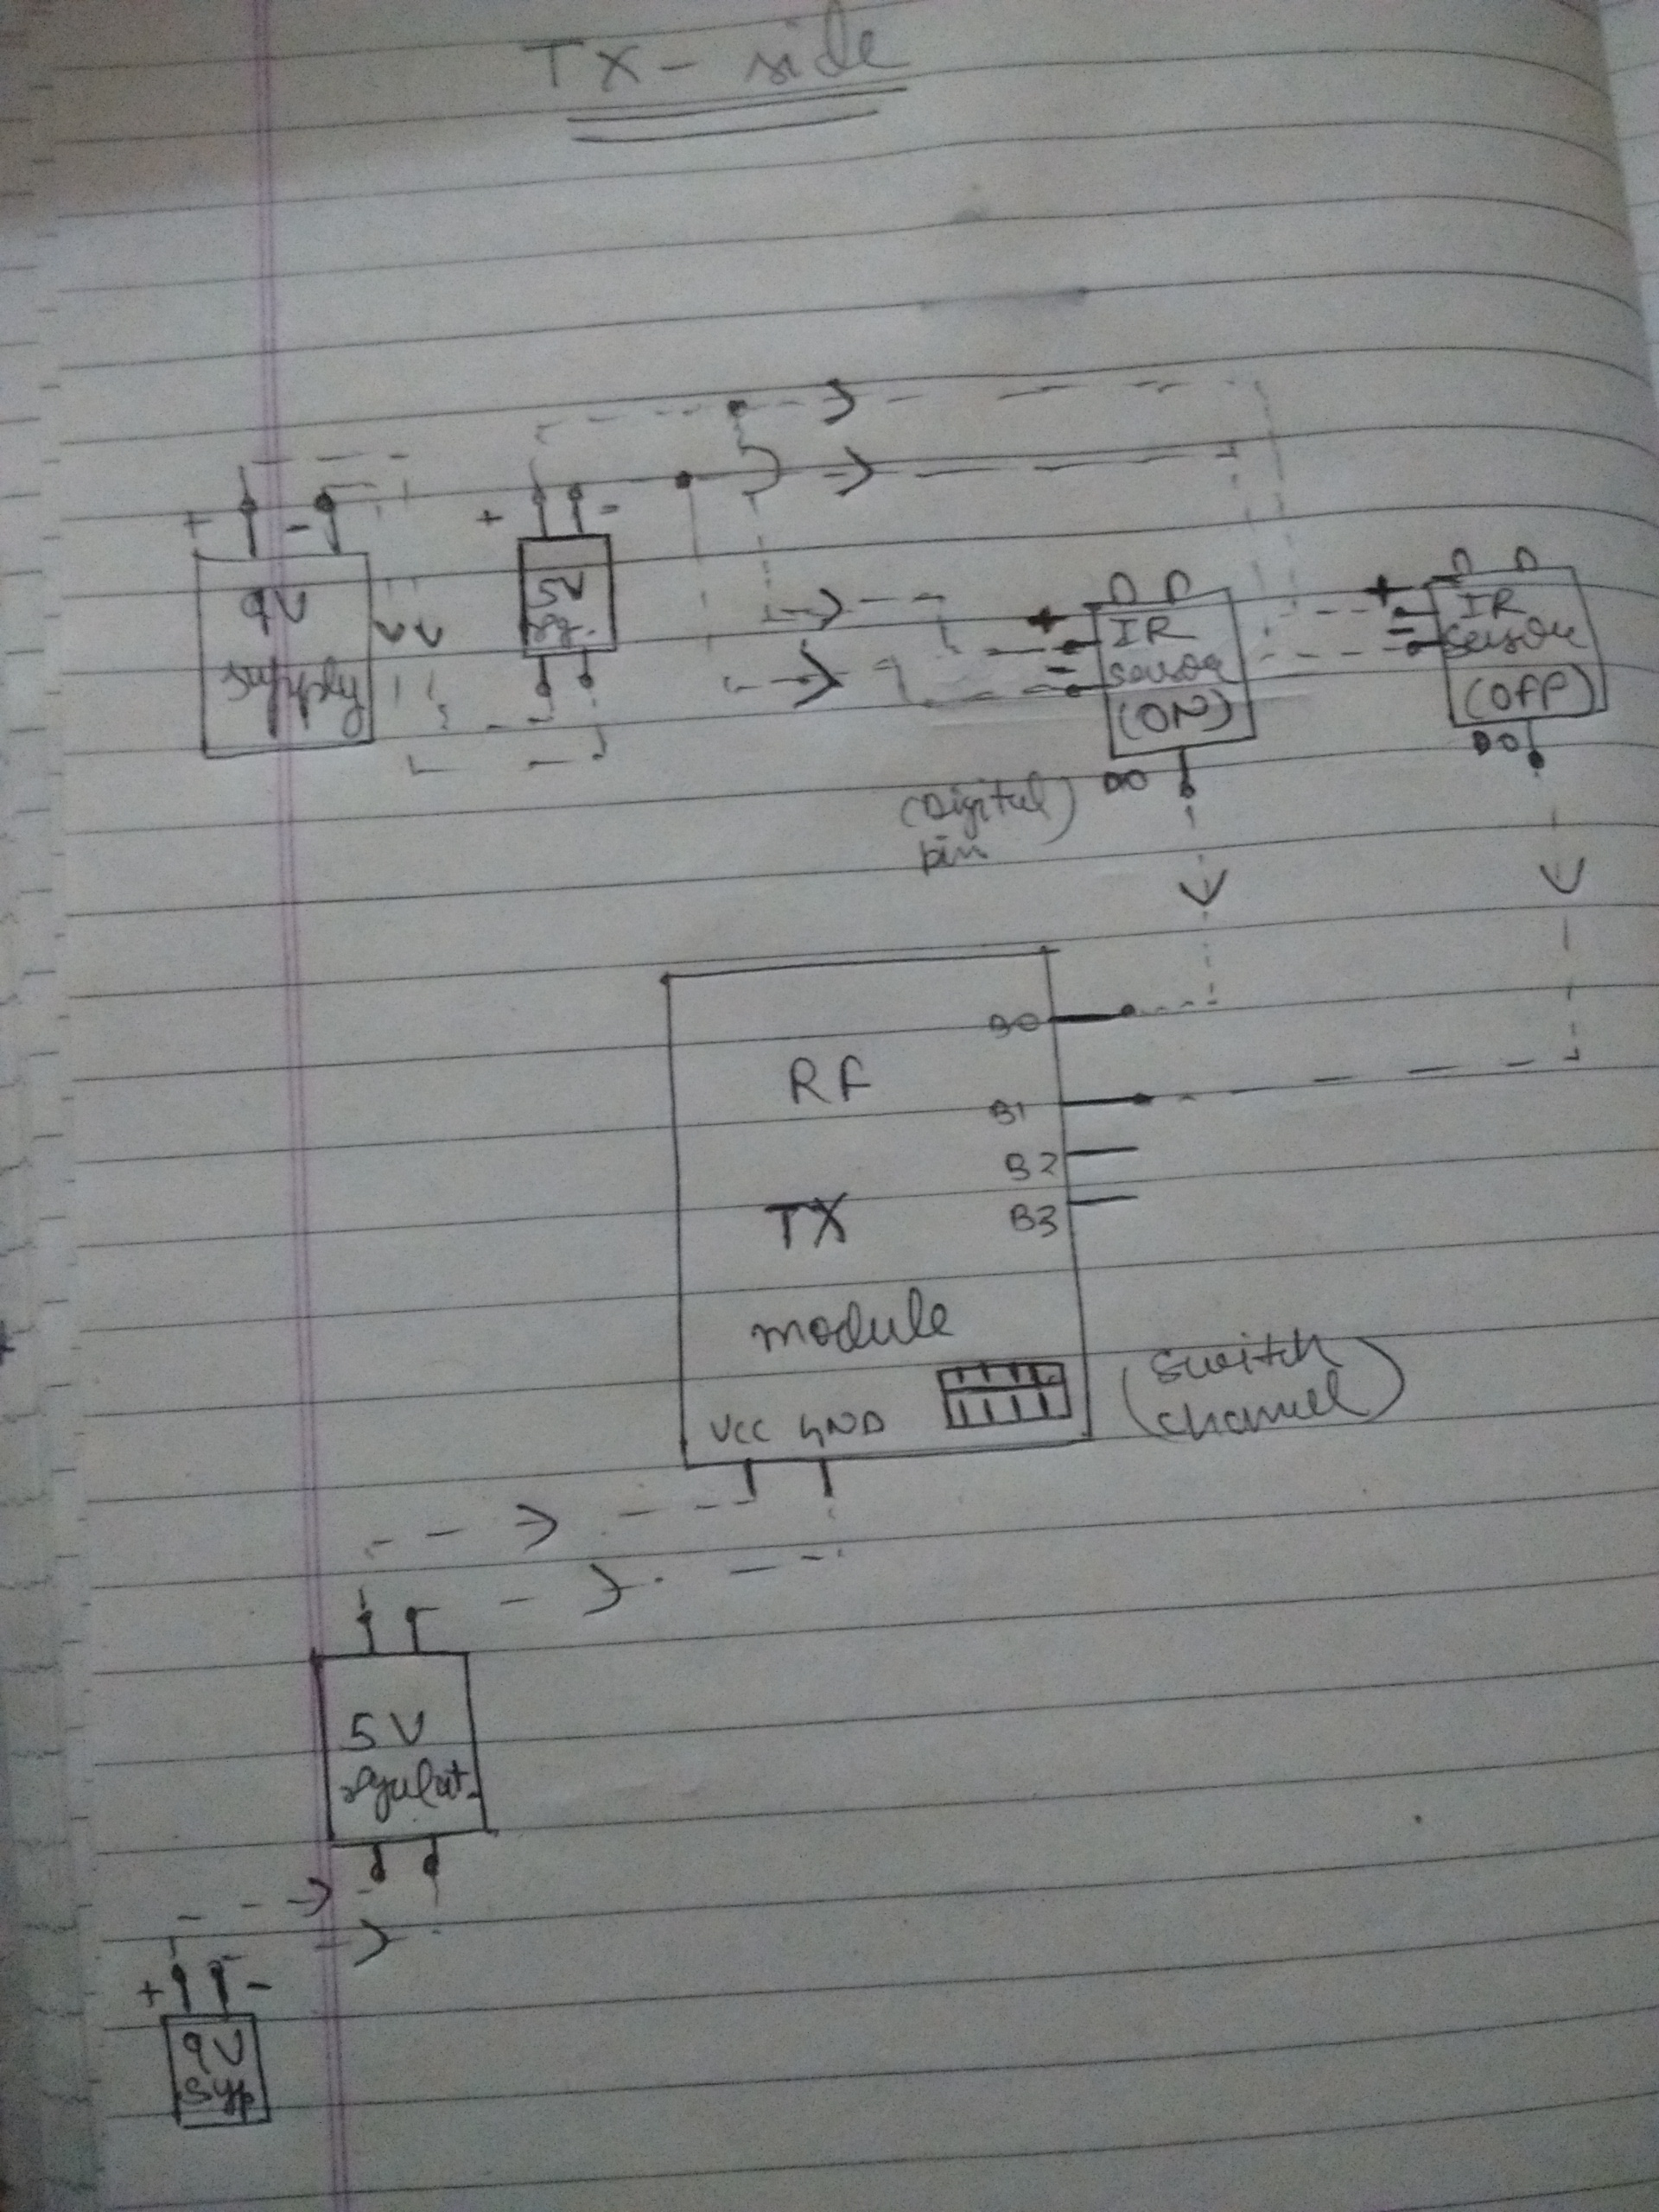 TX - side
+ -
+ -
9V
supply
5V
rg.
+
-
IR
sensor
(ON)
+
-
IR
sensor
(OFF)
DO
DO
(Digital
pin)
RF
TX
module
B0
B1
B2
B3
VCC GND
(switch
channel)
5V
regulat.
+ -
9V
Sup